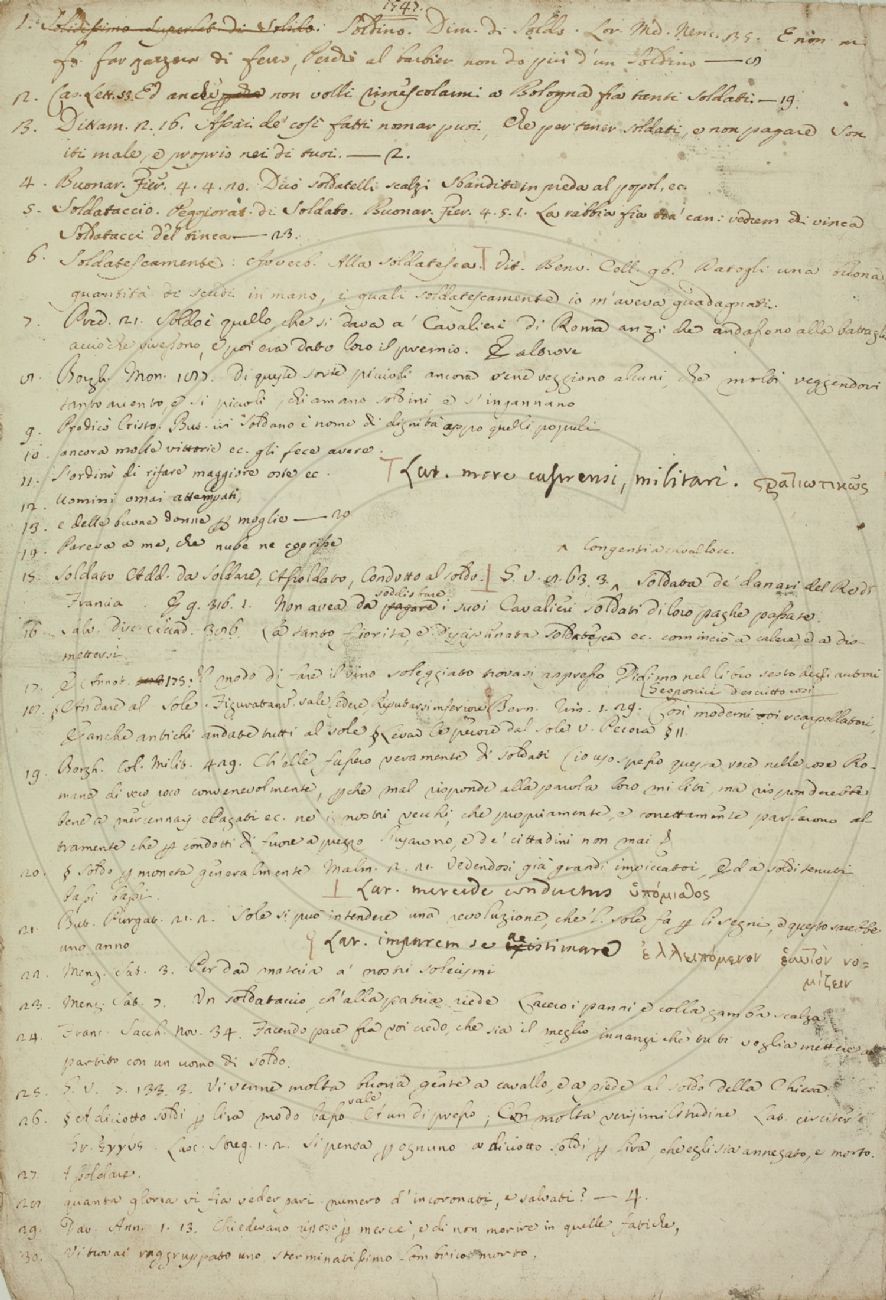 1747.
1. Solidissimo Superlat. di Solido. Soldino. Dim. di Soldo. Lor. Med. Nenc. 135. E non mi
fo far zazzera di ferro, Perdio al barbier non do più d'un Soldino — 8
2. Car. Lett. Ed anche non volli rimescolarmi a Bologna fra tanti Soldati. — 19.
3. Dittam. 2. 16. Assai de' così fatti nomar puoi, Che per tener soldati, e non pagare Son
iti male, e proprio nei dì tuoi. — 2.
4. Buonar. Fier. 4. 4. 20. Dieci soldatelli scalzi Sbanditi in preda al popol, ec.
5. Soldataccio. Peggiorat. di Soldato. Buonar. Fier. 4. 5. 1. La rabbia fia tra' can: vedrem chi vinca
Soldatacci del tinca — 23.
6. Soldatescamente: Avverb. Alla soldatesca. Vit. Benv. Cell. 96. Datogli una buona
quantità di scudi in mano, i quali soldatescamente io m'aveva guadagnati.
7. Pred. 21. Soldo è quello, che si dava a' Cavalieri di Roma anzi che andassono alla battaglia
acciò che vivessono, e poi era dato loro il premio. E altrove
8. Borgh. Mon. 187. Di queste sorte piccioli ancora vene veggiono alcuni, che molti veggendovi
tanto ariento, e sì piccoli chiamano soldini e s'ingannano
9. Predicò Cristo. But. ivi Soldano è nome di dignità appo quelli populi
10. ancora molte vittorie ec. gli fece avere.
11. S'ordinò di rifare maggiore oste ec.
Lat. more castrensi, militari. στρατιωτικῶς
12. Uomini omai attempati,
13. e delle buone donne p moglie — 20
14. Pareva a me, che nube ne coprisse
lo' gente a cavallo ec.
15. Soldato Add. da Soldare, Assoldato, Condotto al soldo. G. V. 8. 63. 3. soldata de' danari del Re di
Francia. E 9. 316. 1. Non avea da pagare soddisfare i suoi Cavalieri soldati di loro paghe passate.
16. Salv. Disc. 306. La tanto fiorita, e disciplinata soldatesca ec. cominciò a calare ed a dis-
mettersi.
17. E Annot. 175. Il modo di fare il vino soleggiato trovasi appresso Didimo nel libro sesto degli autori
Geoponici descritto così
18. § Andare al Sole. Figuratam. vale, Cedere Riputarsi inferiore Bern. Rim. 1. 29. Così moderni voi scarpellatori,
E anche antichi andate tutti al sole § Levar le pecore dal sole v. Pecora § II.
19. Borgh. Col. Milit. 429. Ch'elle fussero veramente di soldati (io uso spesso questa voce nelle cose Ro-
mane di vero poco convenevolmente, pche mal risponde alla parola loro militi, ma risponderebbe
bene a mercennarj e Pagati ec. nè i nostri vecchi, che propriamente, e correttamente parlarono al-
tramente che p condotti di fuore a prezzo l'usarono, e de' cittadini non mai §
20. § Soldo p moneta generalmente Malm. 2. 21. Vedendosi già grandi impiccatoi, E da soldi tenuti
bassi bassi.
Lat. mercede conductus ὑπόμισθος
21. But. Purgat. 21. 2. Sole si può intendere una revoluzione, che 'l Sole fa p li segni, e questo sarebbe
uno anno
Lat. imparem se existimare ἐλλειπόμενον ἑαυτὸν νο-
μίζειν
22. Menz. Sat. 3. Per dar materia a' nostri solecismi
23. Menz. Sat. 7. Un soldataccio, ch'alla patria riede Lacero i panni e colla gamba scalza
24. Franc. Sacch. Nov. 34. Facendo pace fra voi credo, che sia il meglio innanzi che tu ti voglia mettere a
partito con un uomo di soldo.
25. G. V. 7. 133. 3. Vi venne molta buona gente a cavallo, e a piede al soldo della Chiesa
26. § A diciotto soldi p lira modo basso vale; Con molta verisimilitudine Lat. circiter
Gr. ἐγγύς. Lasc. Streg. 1. 2. Si pensa p ognuno a diciotto soldi p lira, che egli sia annegato, e morto.
27. Assoldare.
28. quanta gloria vi fia veder pari numero d'incoronati, e salvati? — 4.
29. Tac. Ann. 1. 13. Chiedevano riposo p mercè, e di non morire in quelle fatiche,
30. Vi trovai raggruppato uno sterminatissimo lombrico morto.